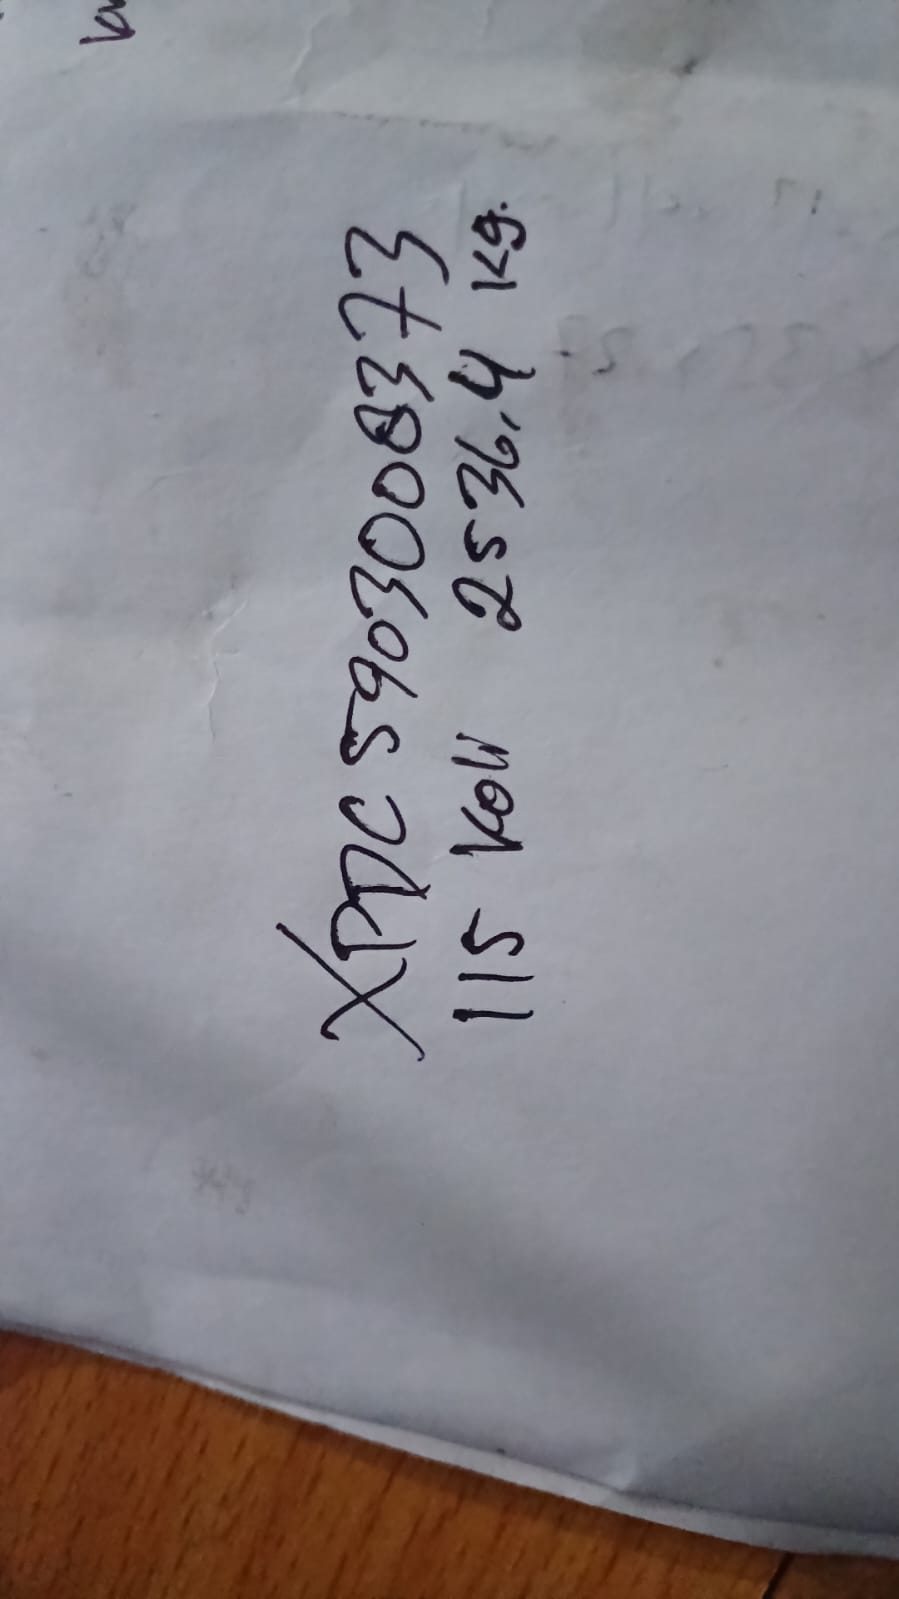 XPDC 5903008373
115 Koli 2536,4 Kg.